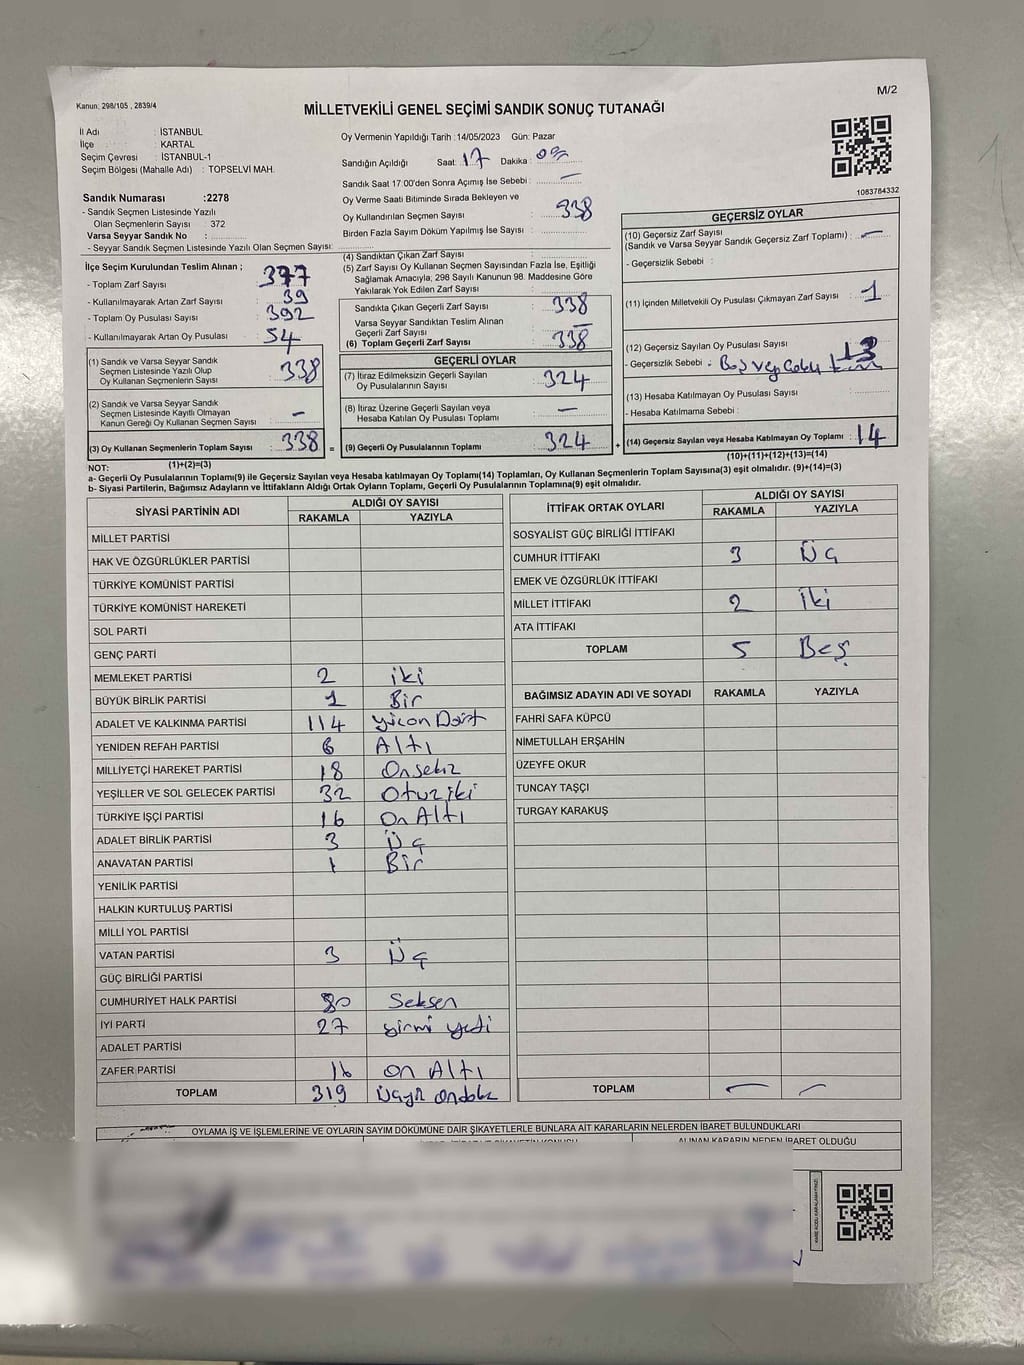 Kanun: 298/105 , 2839/4
M/2
MİLLETVEKİLİ GENEL SEÇİMİ SANDIK SONUÇ TUTANAĞI
İl Adı : İSTANBUL
İlçe : KARTAL
Seçim Çevresi : İSTANBUL-1
Seçim Bölgesi (Mahalle Adı) : TOPSELVİ MAH.
Sandık Numarası :2278
- Sandık Seçmen Listesinde Yazılı
Olan Seçmenlerin Sayısı : 372
Varsa Seyyar Sandık No :
- Seyyar Sandık Seçmen Listesinde Yazılı Olan Seçmen Sayısı:
Oy Vermenin Yapıldığı Tarih :14/05/2023 Gün: Pazar
Sandığın Açıldığı Saat: 17 Dakika :
Sandık Saat 17:00'den Sonra Açımış İse Sebebi : —
Oy Verme Saati Bitiminde Sırada Bekleyen ve
Oy Kullandırılan Seçmen Sayısı : 338
Birden Fazla Sayım Döküm Yapılmış İse Sayısı :
1083784332
İlçe Seçim Kurulundan Teslim Alınan ;
- Toplam Zarf Sayısı : 377
- Kullanılmayarak Artan Zarf Sayısı : 39
- Toplam Oy Pusulası Sayısı : 392
- Kullanılmayarak Artan Oy Pusulası : 54
(1) Sandık ve Varsa Seyyar Sandık
Seçmen Listesinde Yazılı Olup
Oy Kullanan Seçmenlerin Sayısı : 338
(2) Sandık ve Varsa Seyyar Sandık
Seçmen Listesinde Kayıtlı Olmayan
Kanun Gereği Oy Kullanan Seçmen Sayısı : —
(3) Oy Kullanan Seçmenlerin Toplam Sayısı : 338 =
(1)+(2)=(3)
(4) Sandıktan Çıkan Zarf Sayısı :
(5) Zarf Sayısı Oy Kullanan Seçmen Sayısından Fazla İse, Eşitliği
Sağlamak Amacıyla; 298 Sayılı Kanunun 98. Maddesine Göre
Yakılarak Yok Edilen Zarf Sayısı :
Sandıkta Çıkan Geçerli Zarf Sayısı : 338
Varsa Seyyar Sandıktan Teslim Alınan
Geçerli Zarf Sayısı : —
(6) Toplam Geçerli Zarf Sayısı : 338
GEÇERLİ OYLAR
(7) İtiraz Edilmeksizin Geçerli Sayılan
Oy Pusulalarının Sayısı : 324
(8) İtiraz Üzerine Geçerli Sayılan veya
Hesaba Katılan Oy Pusulası Toplamı : —
(9) Geçerli Oy Pusulalarının Toplamı : 324 +
GEÇERSİZ OYLAR
(10) Geçersiz Zarf Sayısı
(Sandık ve Varsa Seyyar Sandık Geçersiz Zarf Toplamı) : —
- Geçersizlik Sebebi :
(11) İçinden Milletvekili Oy Pusulası Çıkmayan Zarf Sayısı : 1
(12) Geçersiz Sayılan Oy Pusulası Sayısı : 13
- Geçersizlik Sebebi : Boş
(13) Hesaba Katılmayan Oy Pusulası Sayısı :
- Hesaba Katılmama Sebebi :
(14) Geçersiz Sayılan veya Hesaba Katılmayan Oy Toplamı : 14
(10)+(11)+(12)+(13)=(14)
NOT:
a- Geçerli Oy Pusulalarının Toplamı(9) ile Geçersiz Sayılan veya Hesaba katılmayan Oy Toplamı(14) Toplamları, Oy Kullanan Seçmenlerin Toplam Sayısına(3) eşit olmalıdır. (9)+(14)=(3)
b- Siyasi Partilerin, Bağımsız Adayların ve İttifakların Aldığı Ortak Oyların Toplamı, Geçerli Oy Pusulalarının Toplamına(9) eşit olmalıdır.
SİYASİ PARTİNİN ADI ALDIĞI OY SAYISI
RAKAMLA YAZIYLA
MİLLET PARTİSİ
HAK VE ÖZGÜRLÜKLER PARTİSİ
TÜRKİYE KOMÜNİST PARTİSİ
TÜRKİYE KOMÜNİST HAREKETİ
SOL PARTİ
GENÇ PARTİ
MEMLEKET PARTİSİ 2 iki
BÜYÜK BİRLİK PARTİSİ 1 Bir
ADALET VE KALKINMA PARTİSİ 114 yüzon Dört
YENİDEN REFAH PARTİSİ 6 Altı
MİLLİYETÇİ HAREKET PARTİSİ 18 Onsekiz
YEŞİLLER VE SOL GELECEK PARTİSİ 32 Otuziki
TÜRKİYE İŞÇİ PARTİSİ 16 On Altı
ADALET BİRLİK PARTİSİ 3 Üç
ANAVATAN PARTİSİ 1 Bir
YENİLİK PARTİSİ
HALKIN KURTULUŞ PARTİSİ
MİLLİ YOL PARTİSİ
VATAN PARTİSİ 3 Üç
GÜÇ BİRLİĞİ PARTİSİ
CUMHURİYET HALK PARTİSİ 80 Seksen
İYİ PARTİ 27 yirmi yedi
ADALET PARTİSİ
ZAFER PARTİSİ 16 on Altı
TOPLAM 319 Üçyüz ondokuz
İTTİFAK ORTAK OYLARI ALDIĞI OY SAYISI
RAKAMLA YAZIYLA
SOSYALİST GÜÇ BİRLİĞİ İTTİFAKI
CUMHUR İTTİFAKI 3 Üç
EMEK VE ÖZGÜRLÜK İTTİFAKI
MİLLET İTTİFAKI 2 İki
ATA İTTİFAKI
TOPLAM 5 Beş
BAĞIMSIZ ADAYIN ADI VE SOYADI RAKAMLA YAZIYLA
FAHRİ SAFA KÜPCÜ
NİMETULLAH ERŞAHİN
ÜZEYFE OKUR
TUNCAY TAŞÇI
TURGAY KARAKUŞ
TOPLAM — —
OYLAMA İŞ VE İŞLEMLERİNE VE OYLARIN SAYIM DÖKÜMÜNE DAİR ŞİKAYETLERLE BUNLARA AİT KARARLARIN NELERDEN İBARET BULUNDUKLARI
ALINAN KARARIN NEDEN İBARET OLDUĞU